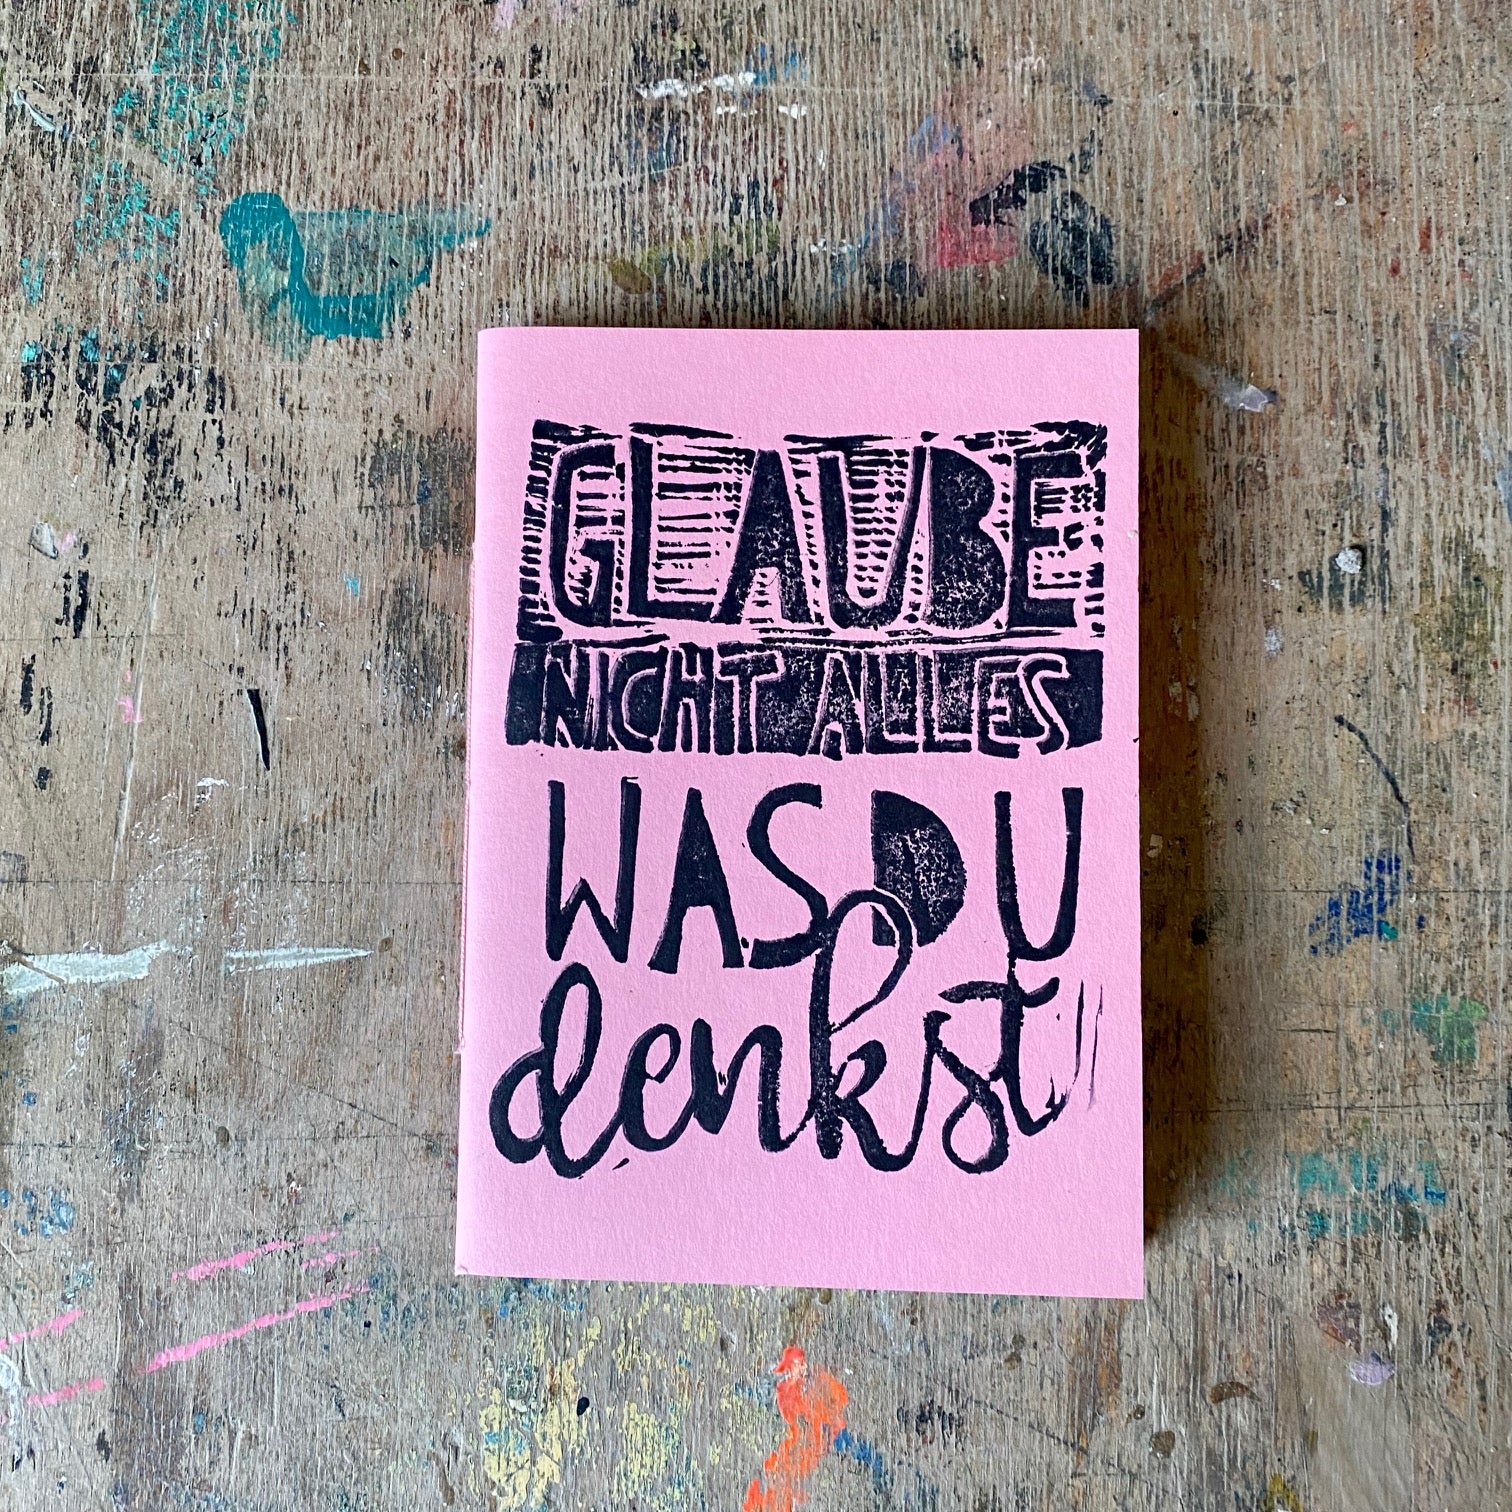 GLAUBE
NICHT ALLES
WAS DU
denkst